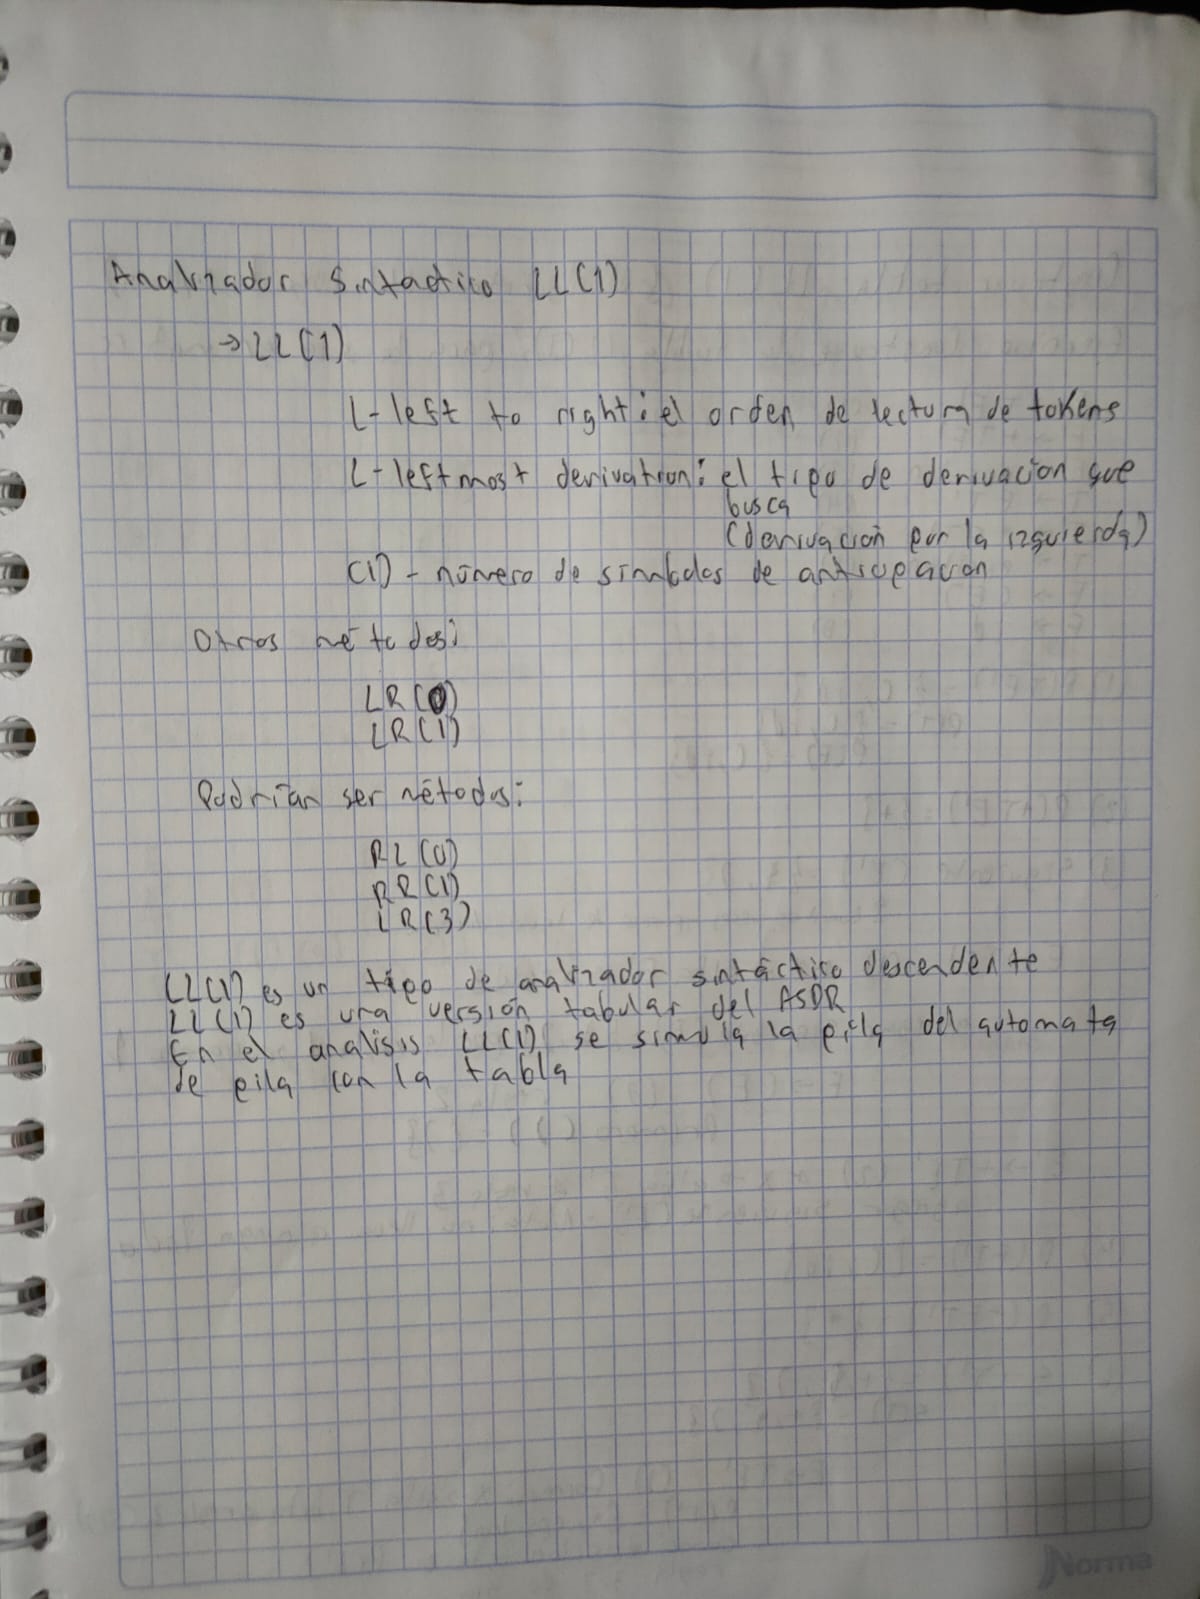 Analizador Sintactico LL(1)
→ LL(1)
L- left to right: el orden de lectura de tokens
L- leftmost derivation: el tipo de derivacion que
busca
(derivación por la izquierda)
(1) - número de simbolos de anticipacion
Otros métodos:
LR(0)
LR(1)
Podrían ser métodos:
RL(0)
RR(1)
LR(3)
LL(1) es un tipo de analizador sintáctico descendente
LL(1) es una versión tabular del ASDR
En el analisis LL(1) se simula la pila del automata
de pila con la tabla
Norma